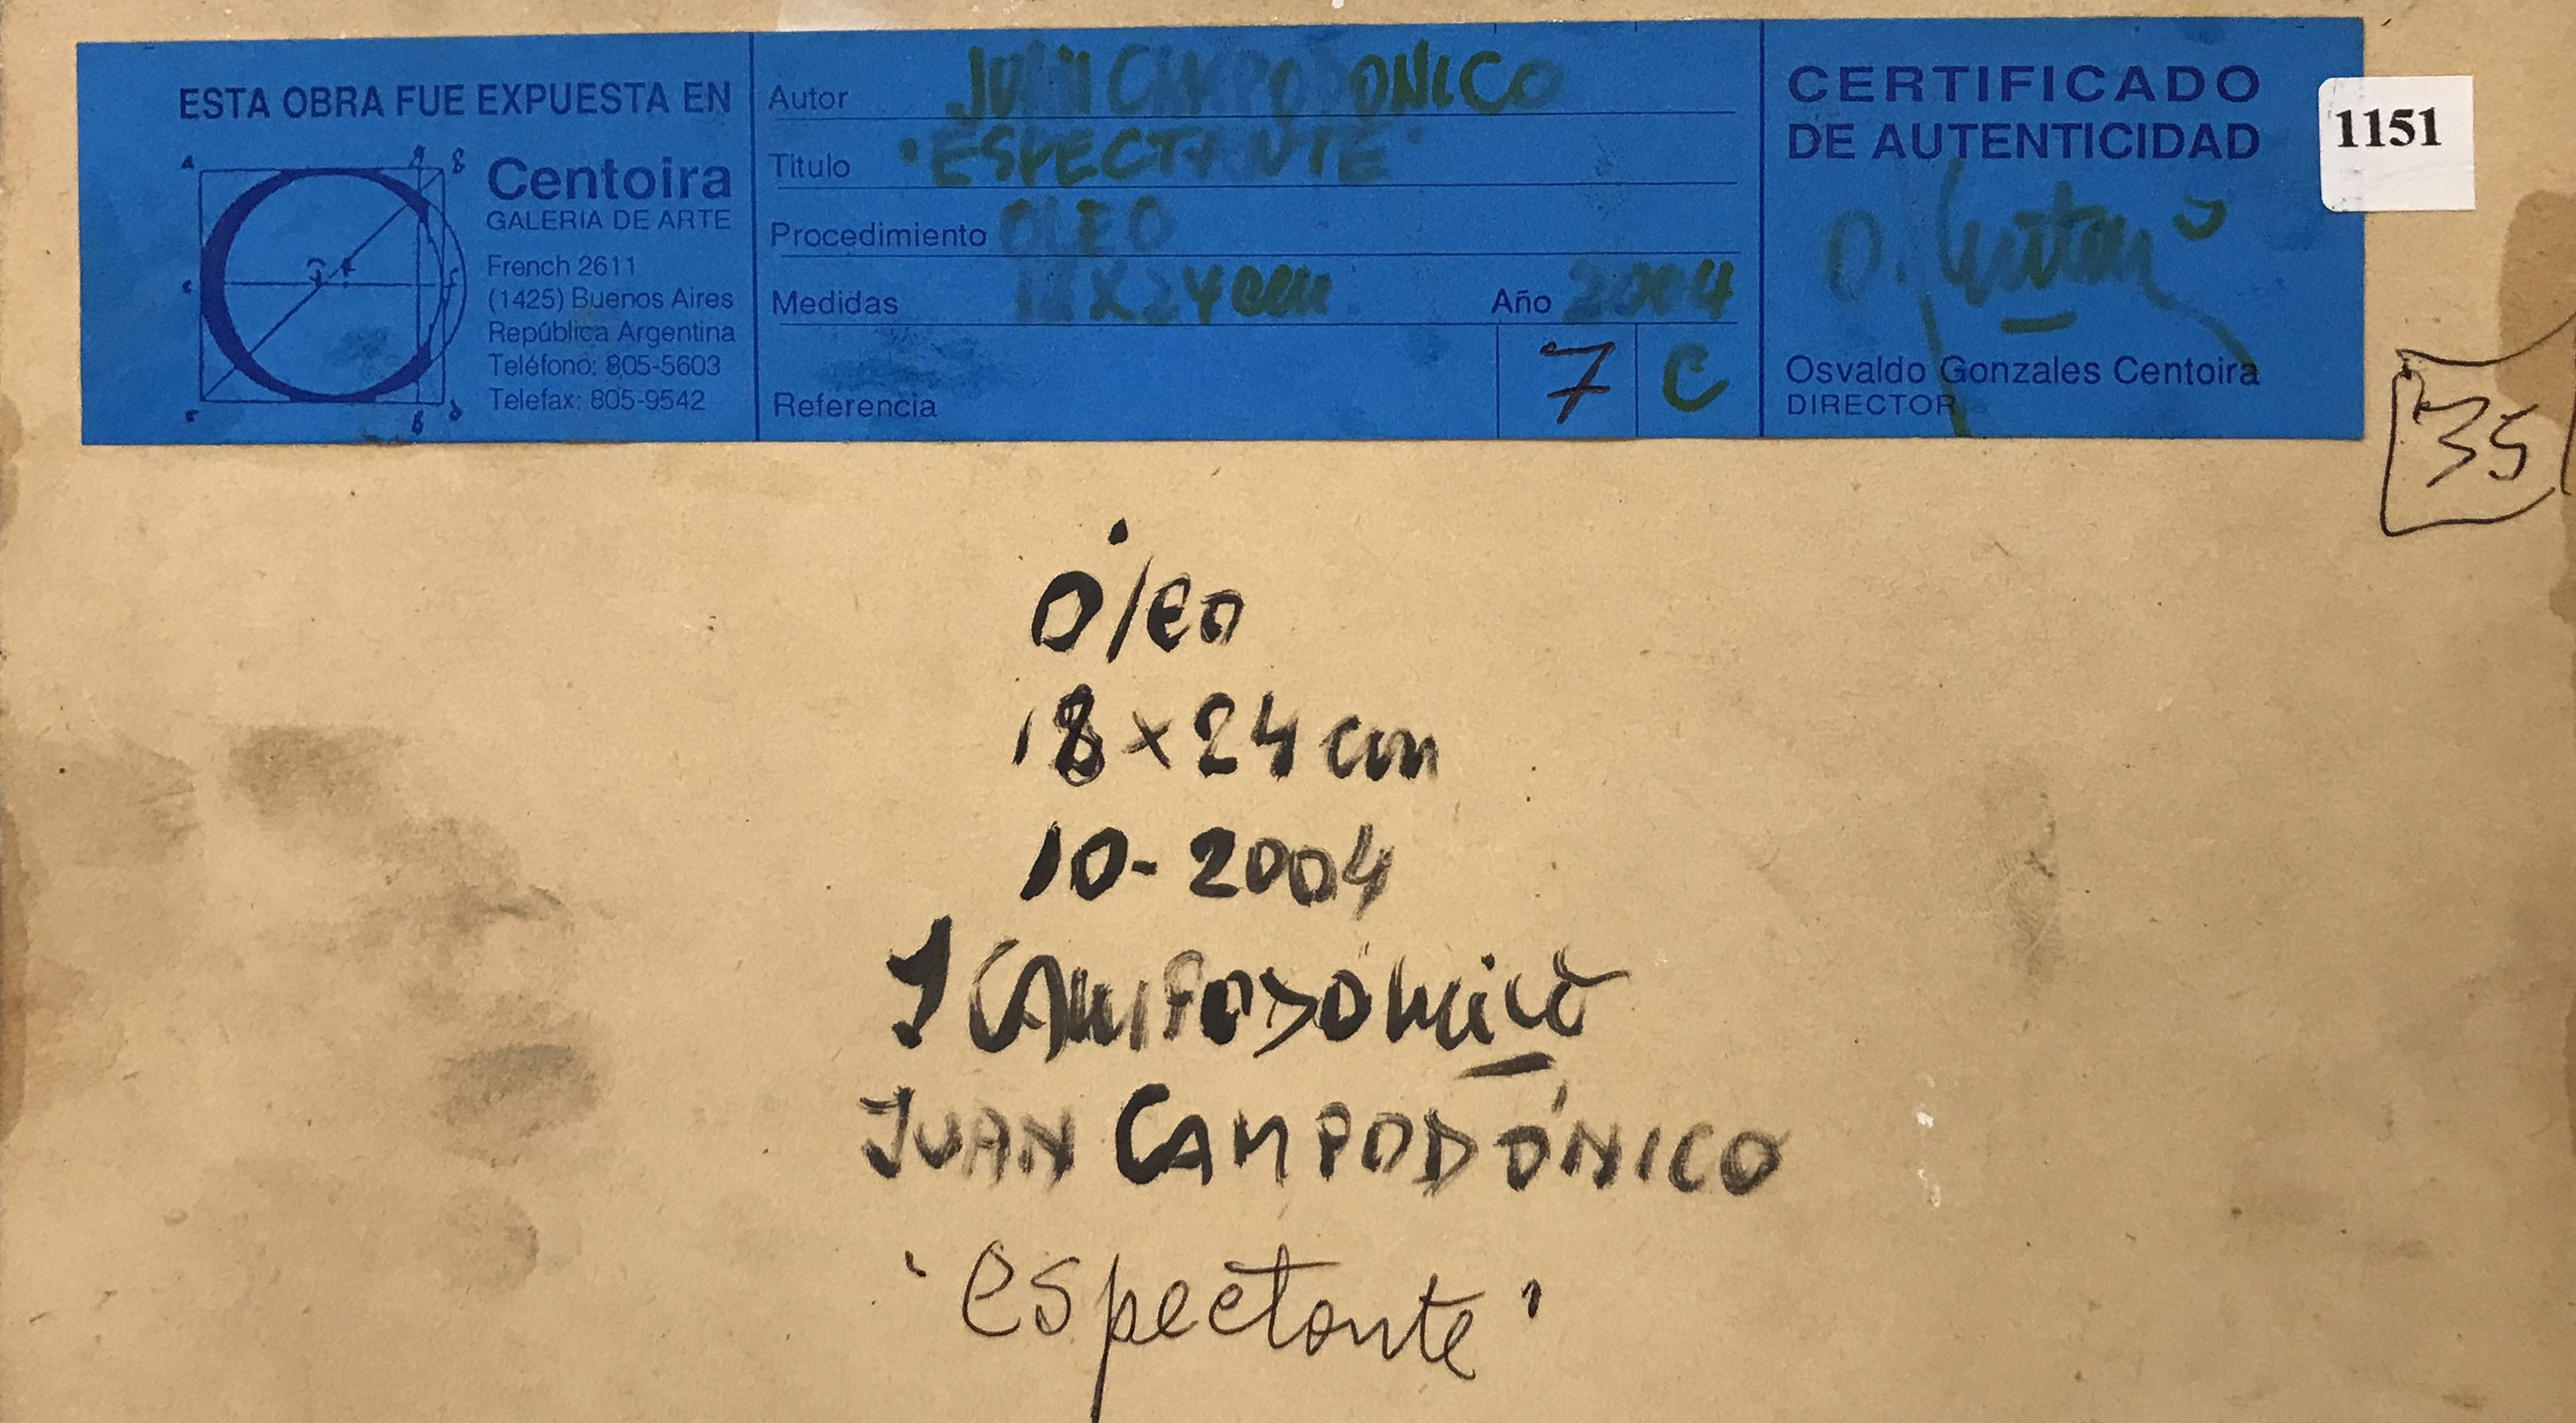 ESTA OBRA FUE EXPUESTA EN
Centoira
GALERIA DE ARTE
French 2611
(1425) Buenos Aires
República Argentina
Teléfono: 805-5603
Telefax: 805-9542
Autor JUAN CAMPODONICO
Titulo "ESPECTANTE"
Procedimiento OLEO
Medidas 18X24 cm. Año 2004
Referencia 7 C
CERTIFICADO
DE AUTENTICIDAD
Osvaldo Gonzales Centoira
DIRECTOR
1151
35
Óleo
18x24 cm
10-2004
J Campodónico
JUAN CAMPODÓNICO
"espectante"